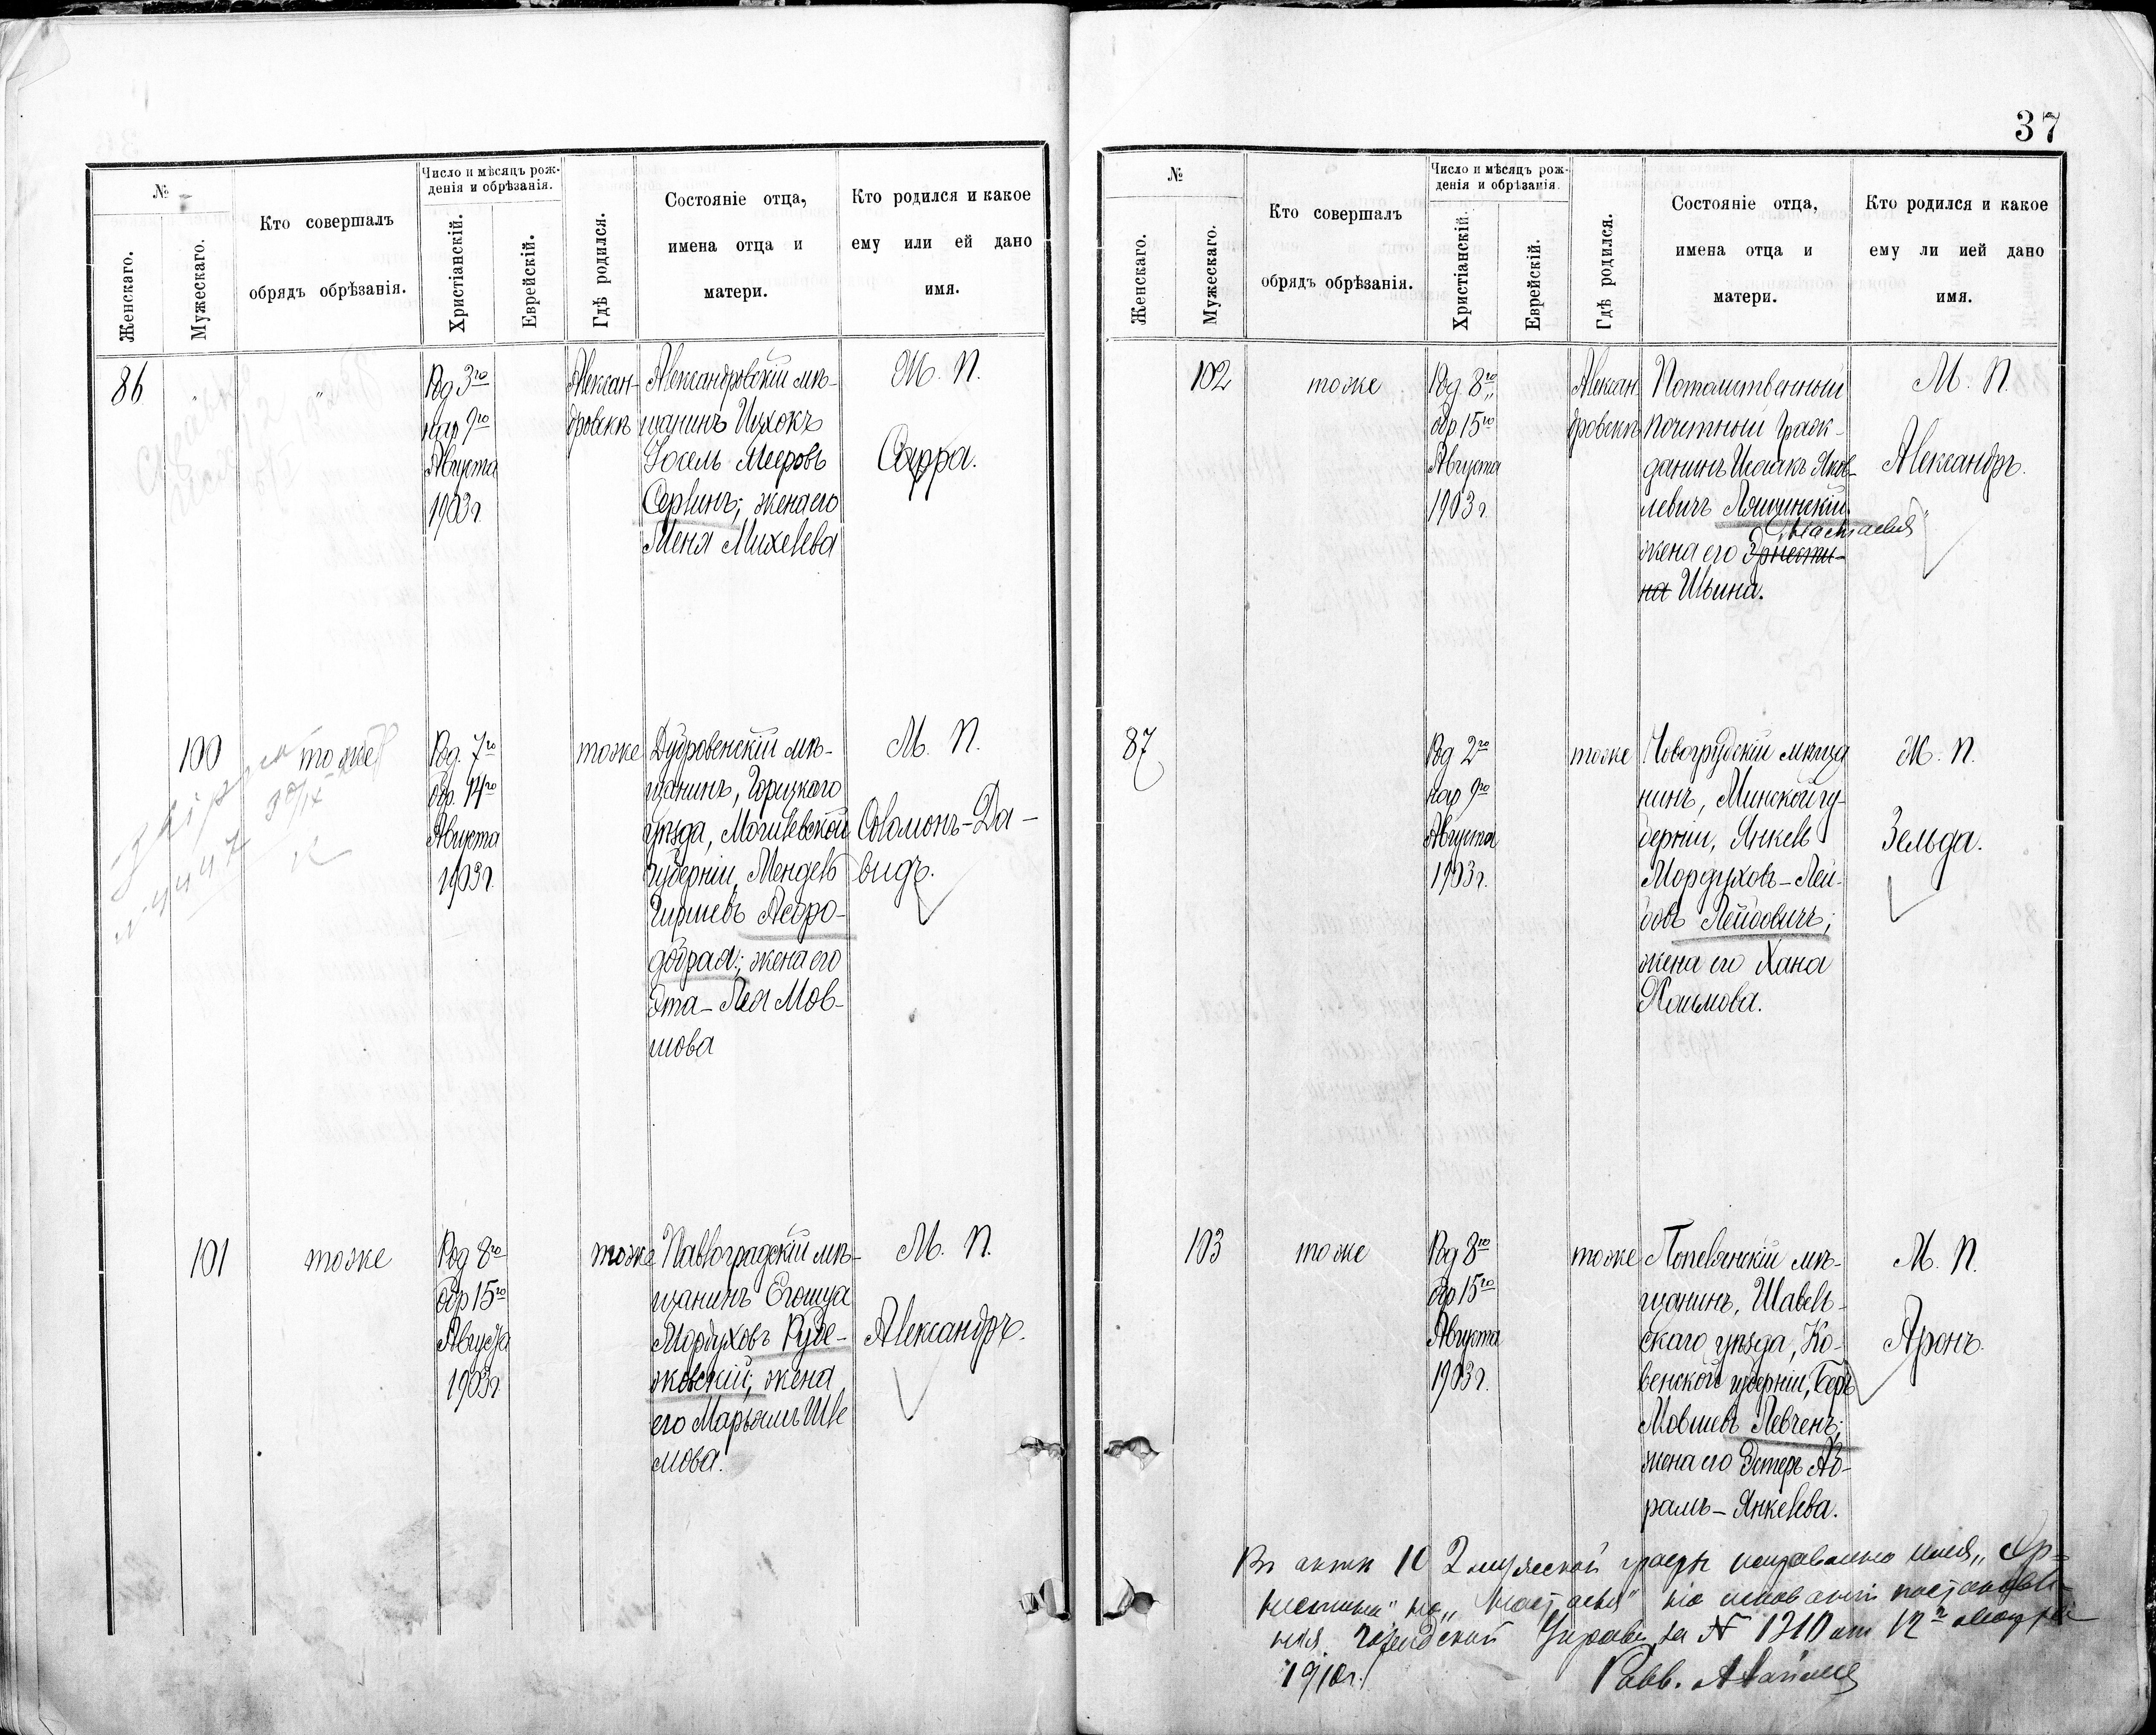 №
Женскаго.
Мужескаго.
Кто совершалъ
обрядъ обрѣзанія.
Число и мѣсяцъ рож-
денія и обрѣзанія.
Христіанскій.
Еврейскій.
Гдѣ родился.
Состояніе отца,
имена отца и
матери.
Кто родился и какое
ему или ей дано
имя.
86
"
"
Род 3го
нар 9го
Августа
1903 г.
Алексан-
дровскъ
Александровскій мѣ-
щанинъ Ицхокъ
Іосель Мееровъ
Серкинъ; жена его
Меня Михелева
М. П.
Сарра.
100
тоже
Род. 7го
обр. 14го
Августа
1903 г.
тоже
Дубровенскій мѣ-
щанинъ, Горецкаго
уѣзда, Могилевской
губерніи, Мендель
Гиршевъ
жена его
Эта-Лея Мов-
шова
М. П.
Соломонъ-Да-
видъ.
101
тоже
Род 8го
обр 15го
Августа
1903 г
тоже
Павлоградскій мѣ-
щанинъ Егошуа
Мордуховъ Рубе-
жовскій; жена
его Марьямъ Шле
мова.
М. П.
Александръ.
37
№
Женскаго.
Мужескаго.
Кто совершалъ
обрядъ обрѣзанія.
Число и мѣсяцъ рож-
денія и обрѣзанія.
Христіанскій.
Еврейскій.
Гдѣ родился.
Состояніе отца,
имена отца и
матери.
Кто родился и какое
ему ли ией дано
имя.
102
тоже
Род. 8го
обр 15го
Августа
1903 г
Алексан
дровскъ
Потомственный
почетный граж-
данинъ Исаакъ Яков-
левичъ Лящинскій.
"Настасья"
жена его Эрнести-
на Ильина.
М. П.
Александръ.
87
Род 2го
нар 9го
Августа
1903 г.
тоже
Новогрудскій мѣща
нинъ, Минской гу-
берніи, Янкель
Мордуховъ-Лей-
бовъ Лейбовичъ;
жена его Хана
Хаимова.
М. П.
Зельда.
103
тоже
Род 8го
обр 15го
Августа
1903 г.
тоже
Попелянскій мѣ-
щанинъ, Шавель-
скаго уѣзда, Ко-
венской губерніи, Беръ
Мовшевъ Левченъ;
жена его Эстеръ Аб-
рамъ-Янкелева.
М. П.
Аронъ.
Въ актѣ 102 мужеской графы исправлено имя "Эр-
нестина" на "Настасья" на основаніи постановле-
нія Городской Управы за № 1310 от 12го
1910 г.
Равв.